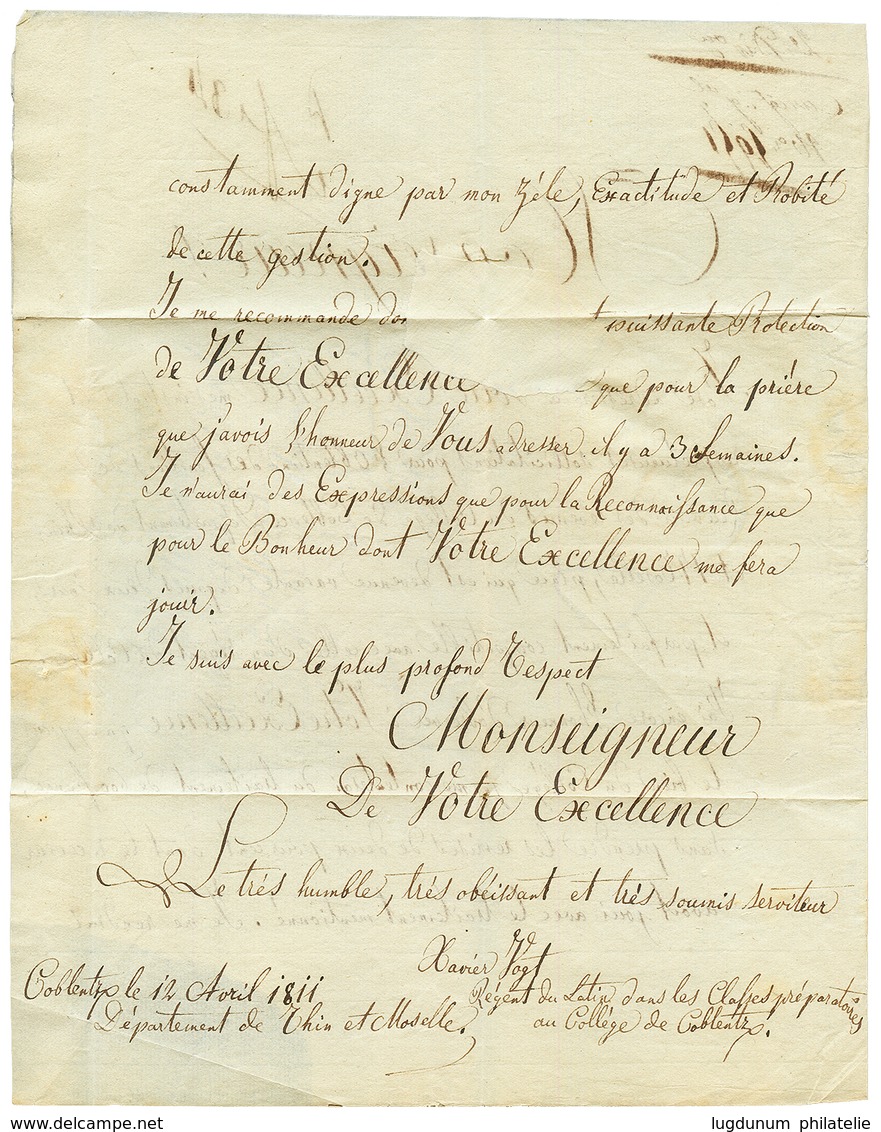 constamment digne par mon zéle, Exactitude et Probité
de cette gestion.
Je me recommande puissante Protection
de Votre Excellence que pour la priére
que j'avois l'honneur de Vous adresser il y a 3 Semaines.
Je n'aurai des Expressions que pour la Reconnoissance que
pour le Bonheur dont Votre Excellence me fera
jouir.
Je suis avec le plus profond respect
Monseigneur
De Votre Excellence
Le trés humble, trés obéissant et trés soumis serviteur
Xavier Vogt
Coblentz le 12 Avril 1811
Régent du Latin dans les Classes préparatoires
Département de Rhin et Moselle.
au Collége de Coblentz.
www.delcampe.net
lugdunum philatelie